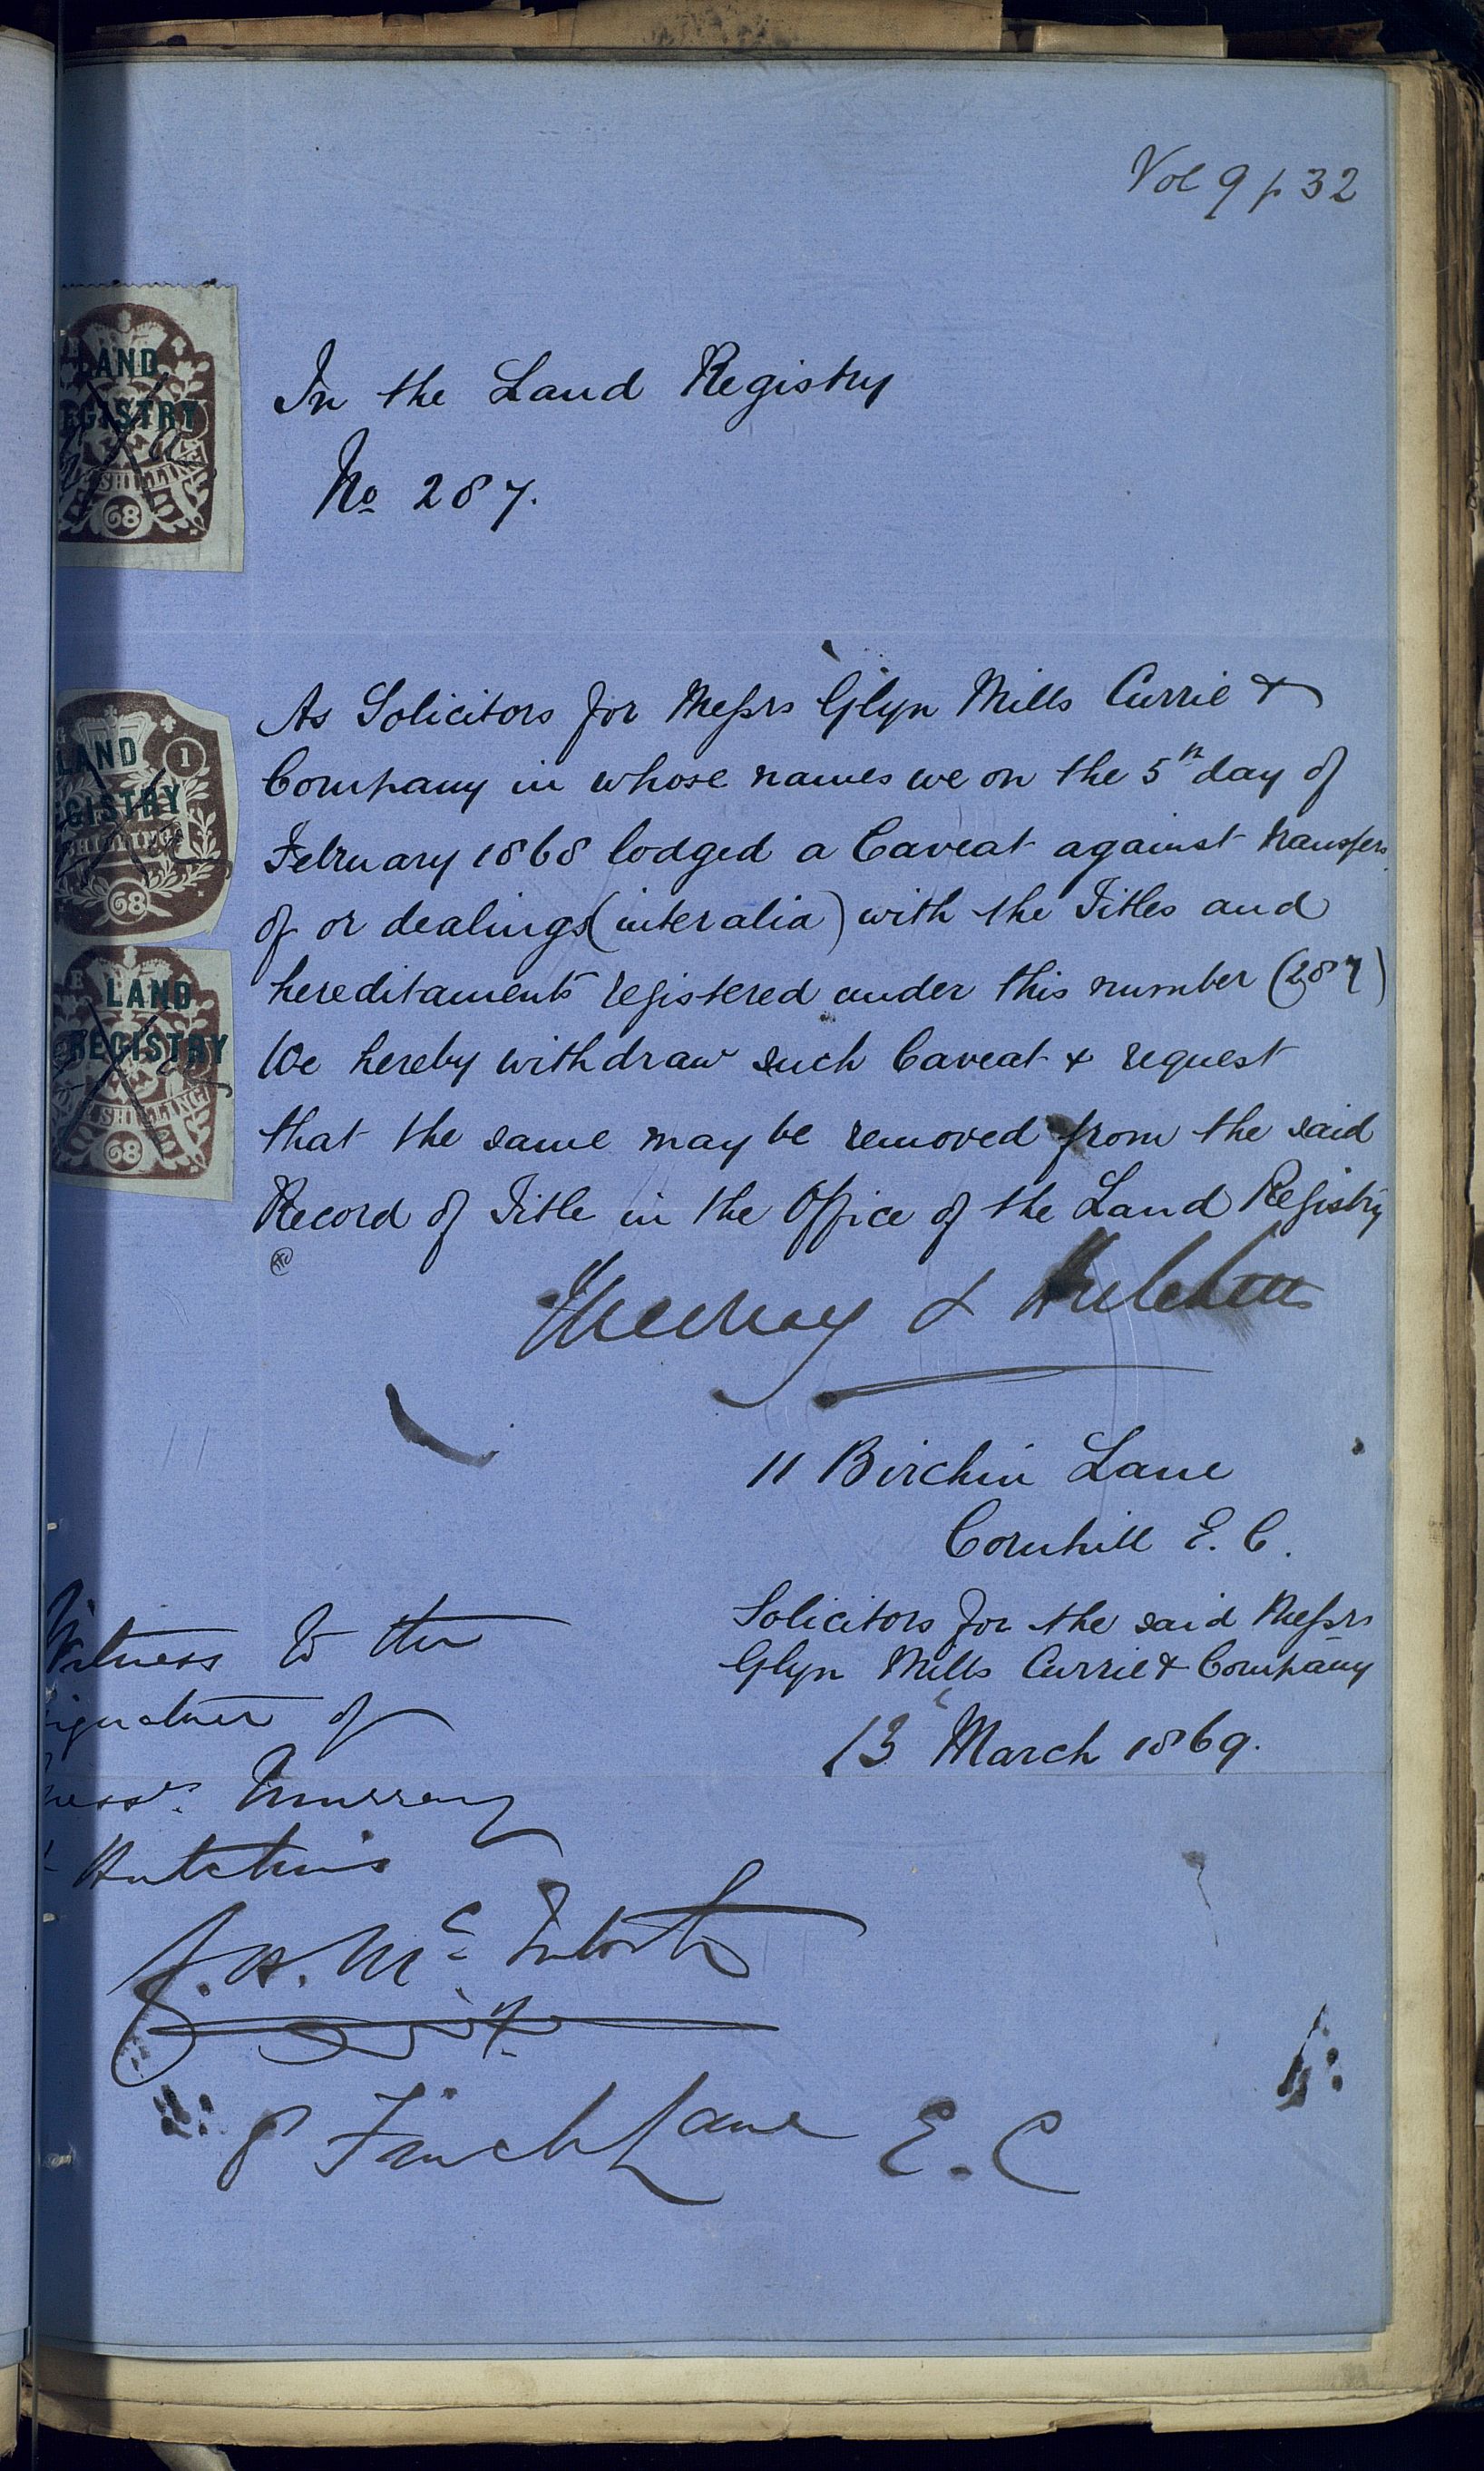 Vol 9 p 32
LAND
EGISTRY
SHILLING
68
In the Land Registry
No 287.
LAND
1
GISTRY
SHILLING
68
As Solicitors for Messrs Glyn Mills Currie &
Company in whose names we on the 5th day of
February 1868 lodged a Caveat against transfers
of or dealings (inter alia) with the Titles and
hereditaments registered under this number (287)
LAND
REGISTRY
SHILLING
68
We hereby withdraw such Caveat & request
that the same may be removed from the said
Record of Title in the Office of the Land Registry
Murray & Hutchins
11 Birchin Lane
Cornhill E. C.
Solicitors for the said Messrs
Glyn Mills Currie & Company
13 March 1869.
Witness to the
signature of
Messrs. Murray
& Hutchins
J. H. McIntosh
8 Finch Lane E. C